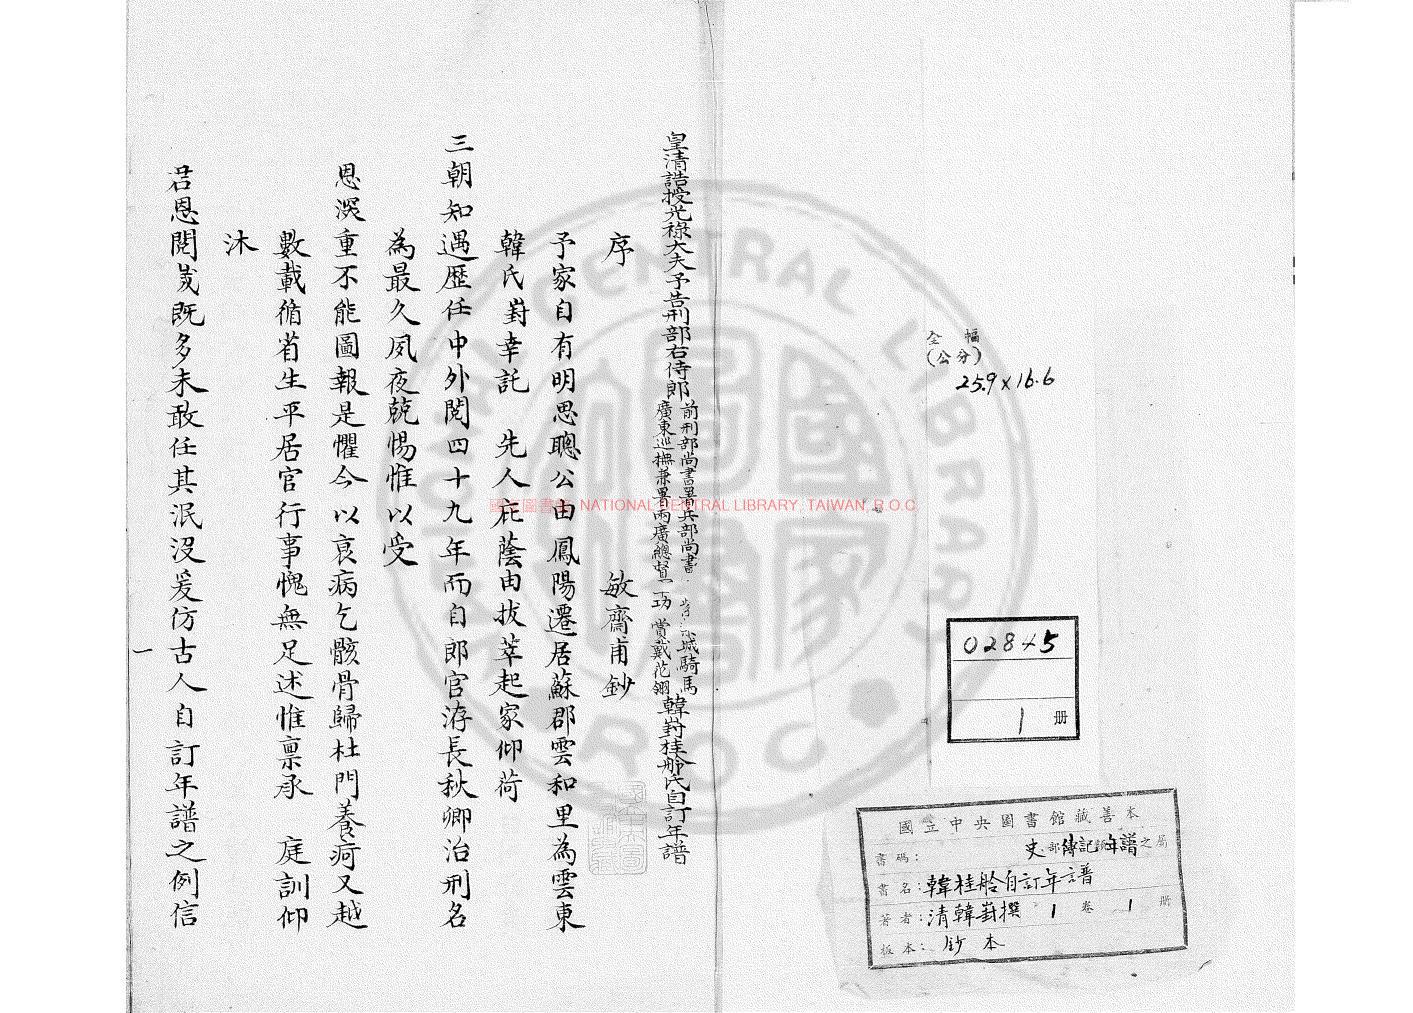 全幅
(公分)
25.9×16.6
02845
1 冊
國立中央圖書館藏善本
書碼: 史部傳記類年譜之屬
書名:韓桂舲自訂年譜
著者:清韓崶撰 1 卷 1 冊
板本:鈔本
皇清誥授光祿大夫予告刑部右侍郎
前刑部尚書署兵部尚書
城騎馬
廣東巡撫兼署兩廣總督
賞戴花翎
韓崶桂舲氏自訂年譜
序 敏齋甫鈔
予家自有明思聰公由鳳陽遷居蘇郡雲和里為雲東
韓氏崶幸託 先人庇蔭由拔萃起家仰荷
三朝知遇歷任中外閱四十九年而自郎官洊長秋卿治刑名
為最久夙夜兢惕惟以受
恩深重不能圖報是懼今以衰病乞骸骨歸杜門養疴又越
數載循省生平居官行事愧無足述惟稟承 庭訓仰
沐
君恩閱歲既多未敢任其泯沒爰仿古人自訂年譜之例信
一
國家圖書館 NATIONAL CENTRAL LIBRARY, TAIWAN, R.O.C